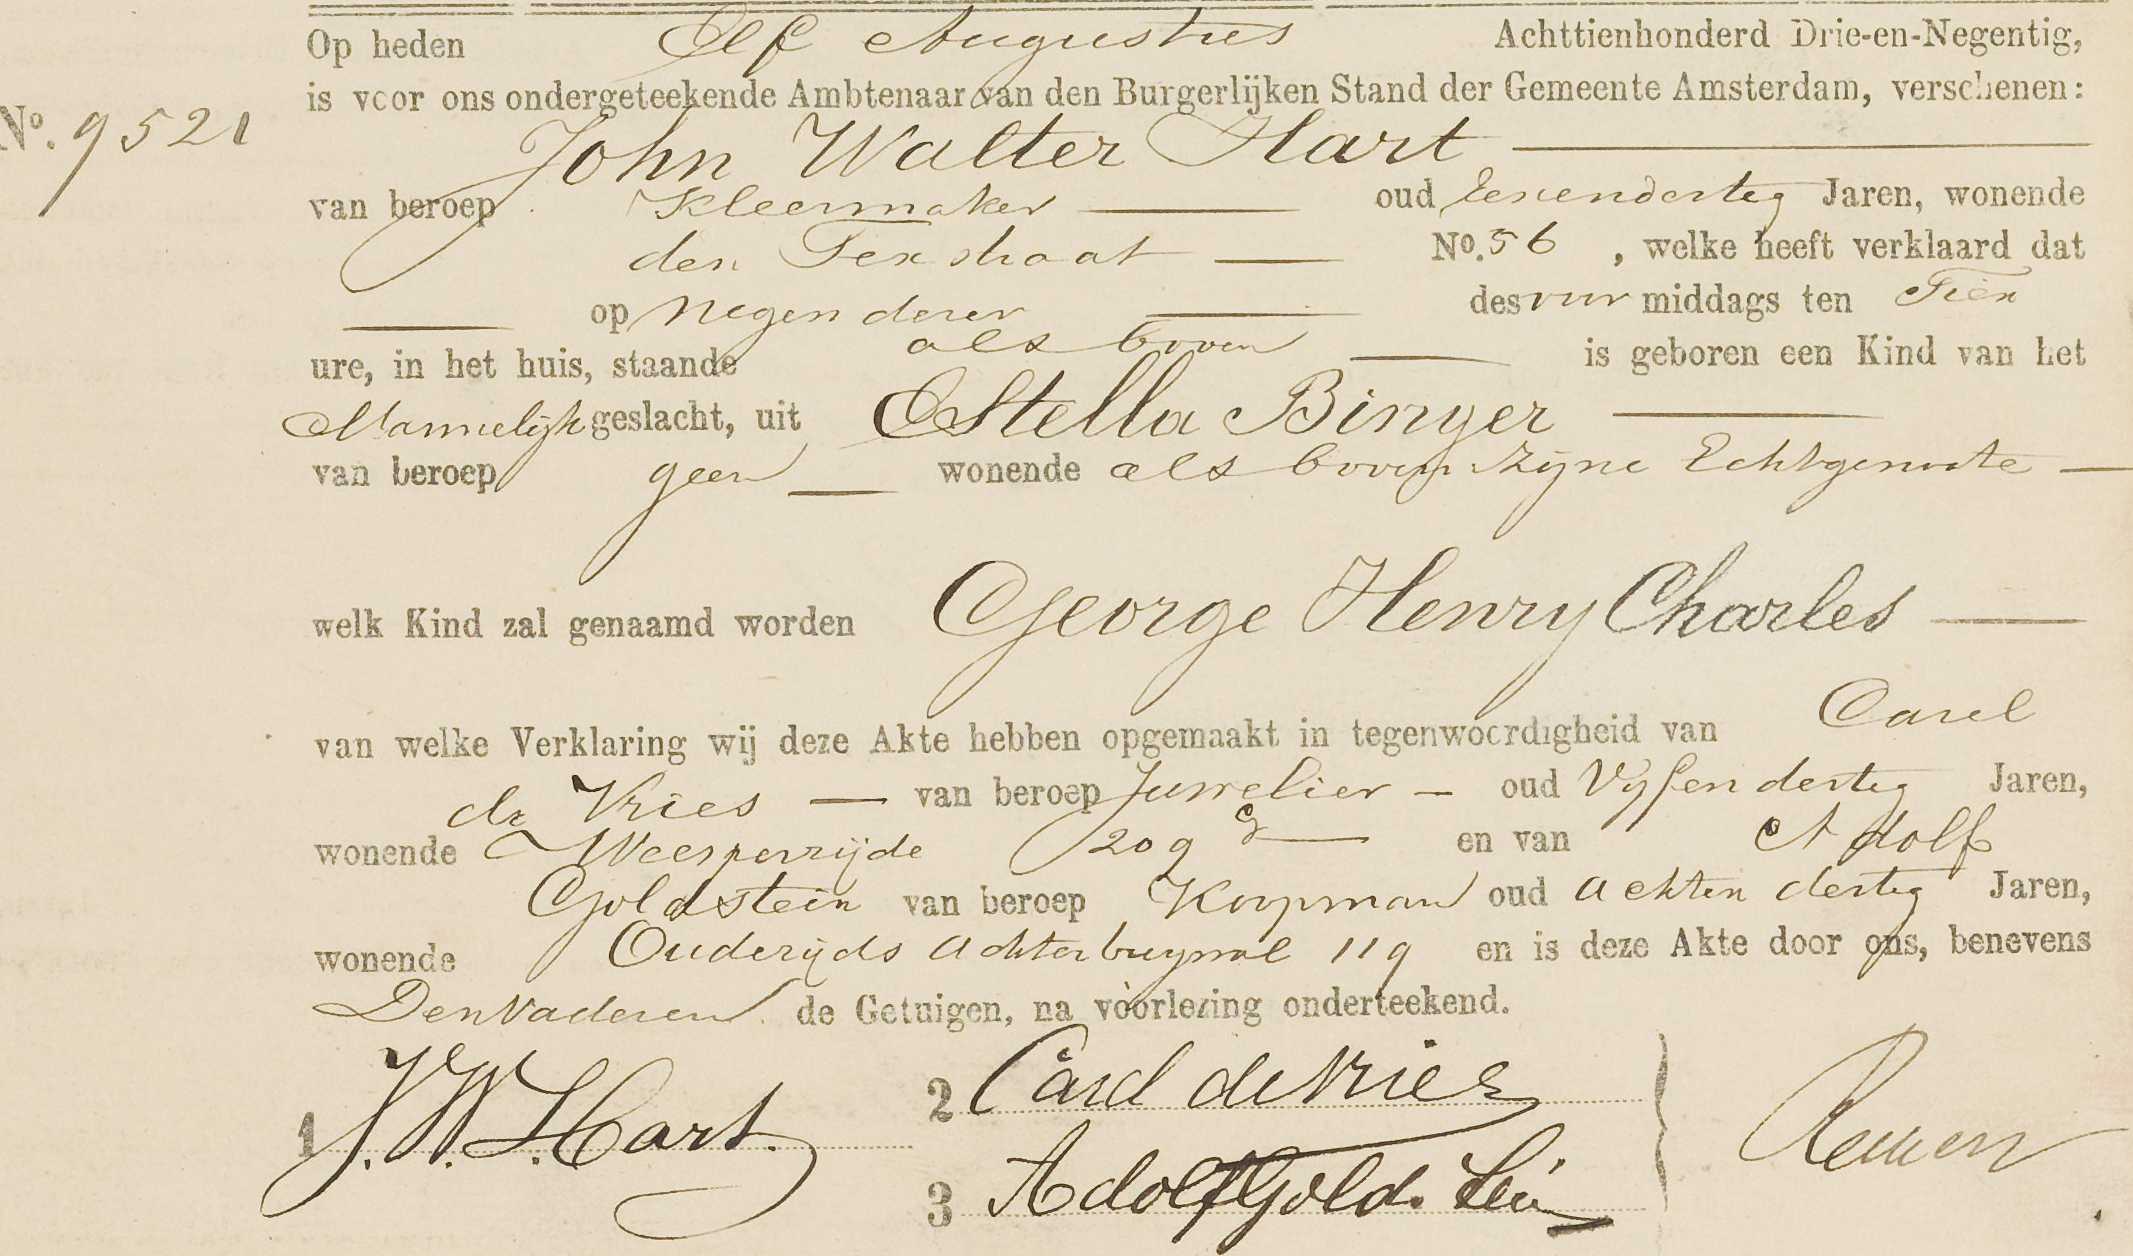 Op heden Elf Augustus Achttienhonderd Drie-en-Negentig,
is voor ons ondergeteekende Ambtenaar van den Burgerlijken Stand der Gemeente Amsterdam, verschenen:
No. 9521
John Walter Hart
van beroep Kleermaker oud Eenendertig Jaren, wonende
den Texstraat No. 56, welke heeft verklaard dat
op Negen dezer des voor middags ten Tien
ure, in het huis, staande als boven is geboren een Kind van het
Mannelijk geslacht, uit Estella Binger
van beroep geen wonende als boven Zijne Echtgenoote
welk Kind zal genaamd worden George Henry Charles
van welke Verklaring wij deze Akte hebben opgemaakt in tegenwoordigheid van Carel
de Vries van beroep Juwelier oud Vijfendertig Jaren,
wonende Weesperzijde 209 en van Adolf
Goldstein van beroep Koopman oud Achtendertig Jaren,
wonende Oudezijds Achterburgwal 119 en is deze Akte door ons, benevens
Den Vader en de Getuigen, na voorlezing onderteekend.
1 J. W. Hart.
2 Carel de Vries
3 Adolf Goldstein